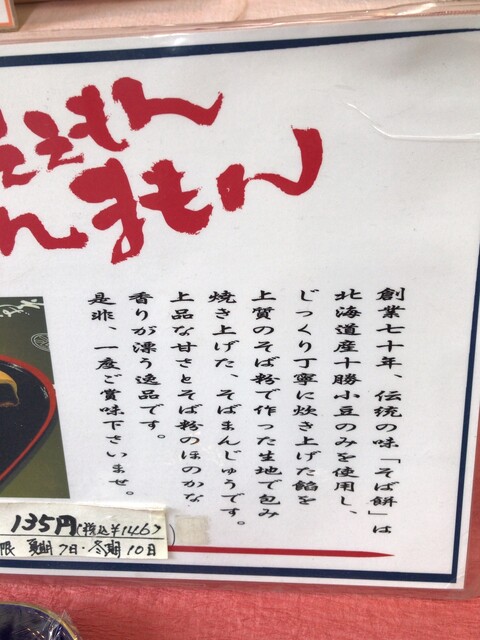 ええもん
んまもん
創業七十年、伝統の味「そば餅」は
北海道産十勝小豆のみを使用し、
じっくり丁寧に炊き上げた餡を
上質のそば粉で作った生地で包み
焼き上げた、そばまんじゅうです。
上品な甘さとそば粉のほのかな
香りが漂う逸品です。
是非、一度ご賞味下さいませ。
135円(税込¥146)
限 夏期7日・冬期10日